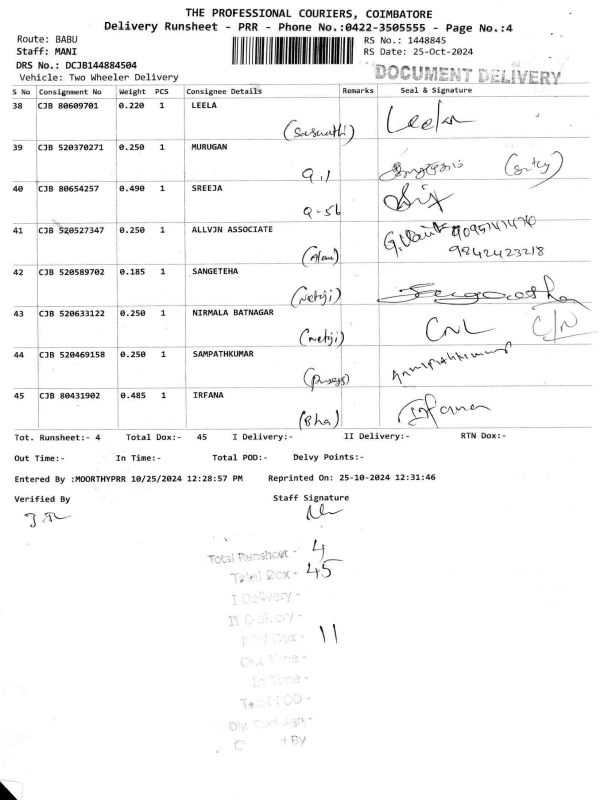 THE PROFESSIONAL COURIERS, COIMBATORE
Delivery Runsheet - PRR - Phone No.:0422-3505555 - Page No.:4
Route: BABU RS No.: 1448845
Staff: MANI RS Date: 25-Oct-2024
DRS No.: DCJB144884504
Vehicle: Two Wheeler Delivery DOCUMENT DELIVERY
S No Consignment No Weight PCS Consignee Details Remarks Seal & Signature
38 CJB 80609701 0.220 1 LEELA Leela
39 CJB 520370271 0.250 1 MURUGAN
40 CJB 80654257 0.490 1 SREEJA
Q-56
41 CJB 520527347 0.250 1 ALLVJN ASSOCIATE
(Alan) 9842423218
42 CJB 520589702 0.185 1 SANGETEHA
(Netaji) Sangeetha
43 CJB 520633122 0.250 1 NIRMALA BATNAGAR
(Netaji) CNL C/N
44 CJB 520469158 0.250 1 SAMPATHKUMAR
45 CJB 80431902 0.485 1 IRFANA
(Bha) Irfana
Tot. Runsheet:- 4 Total Dox:- 45 I Delivery:- II Delivery:- RTN Dox:-
Out Time:- In Time:- Total POD:- Delvy Points:-
Entered By :MOORTHYPRR 10/25/2024 12:28:57 PM Reprinted On: 25-10-2024 12:31:46
Verified By Staff Signature
Total Runsheet - 4
Total Dox - 45
I Delivery -
II Delivery -
RTN Dox - 11
Out Time -
In Time -
Total POD -